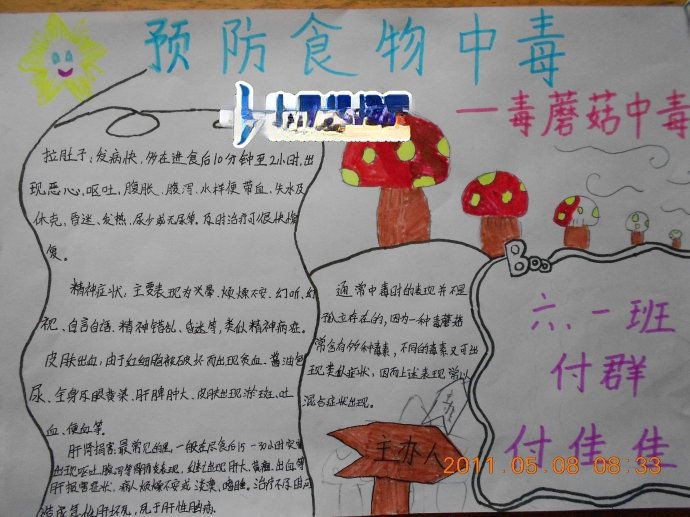 预防食物中毒
一毒蘑菇中毒
拉肚子:发病快,所在进食后10分钟至2小时,出
现恶心,呕吐,腹胀、腹泻、水样便带血、失水及
休克,昏迷、发热、尿少或无尿等,及时治疗可很快
复。
精神症状:主要表现为兴奋、烦燥不安、幻听、幻
视、自言自语、精神错乱、昏迷等,类似精神病症。
皮肤出血,由于红细胞被破坏而出现贫血、酱油色
尿、全身及眼黄染、肝脾肿大、皮肤出现淤斑、吐
血、便血等。
肝肾损害:最常见的是,一般在尽食后15一30小时
出现呕吐、腹泻等表现,继之出现肝大、黄疸、出血等
肝损害症状,病人烦燥不安或淡漠、嗜睡。治疗不
急性肝坏死,死于肝性脑病。
通常中毒时的表现并不是
独立存在的,因为一种毒蘑菇
常含有多种毒素,不同的毒素又可出
现类似症状,因而上述表现常以
混合症状出现。
主办人
六、一班
付群
付佳佳
2011.05.08 08:33